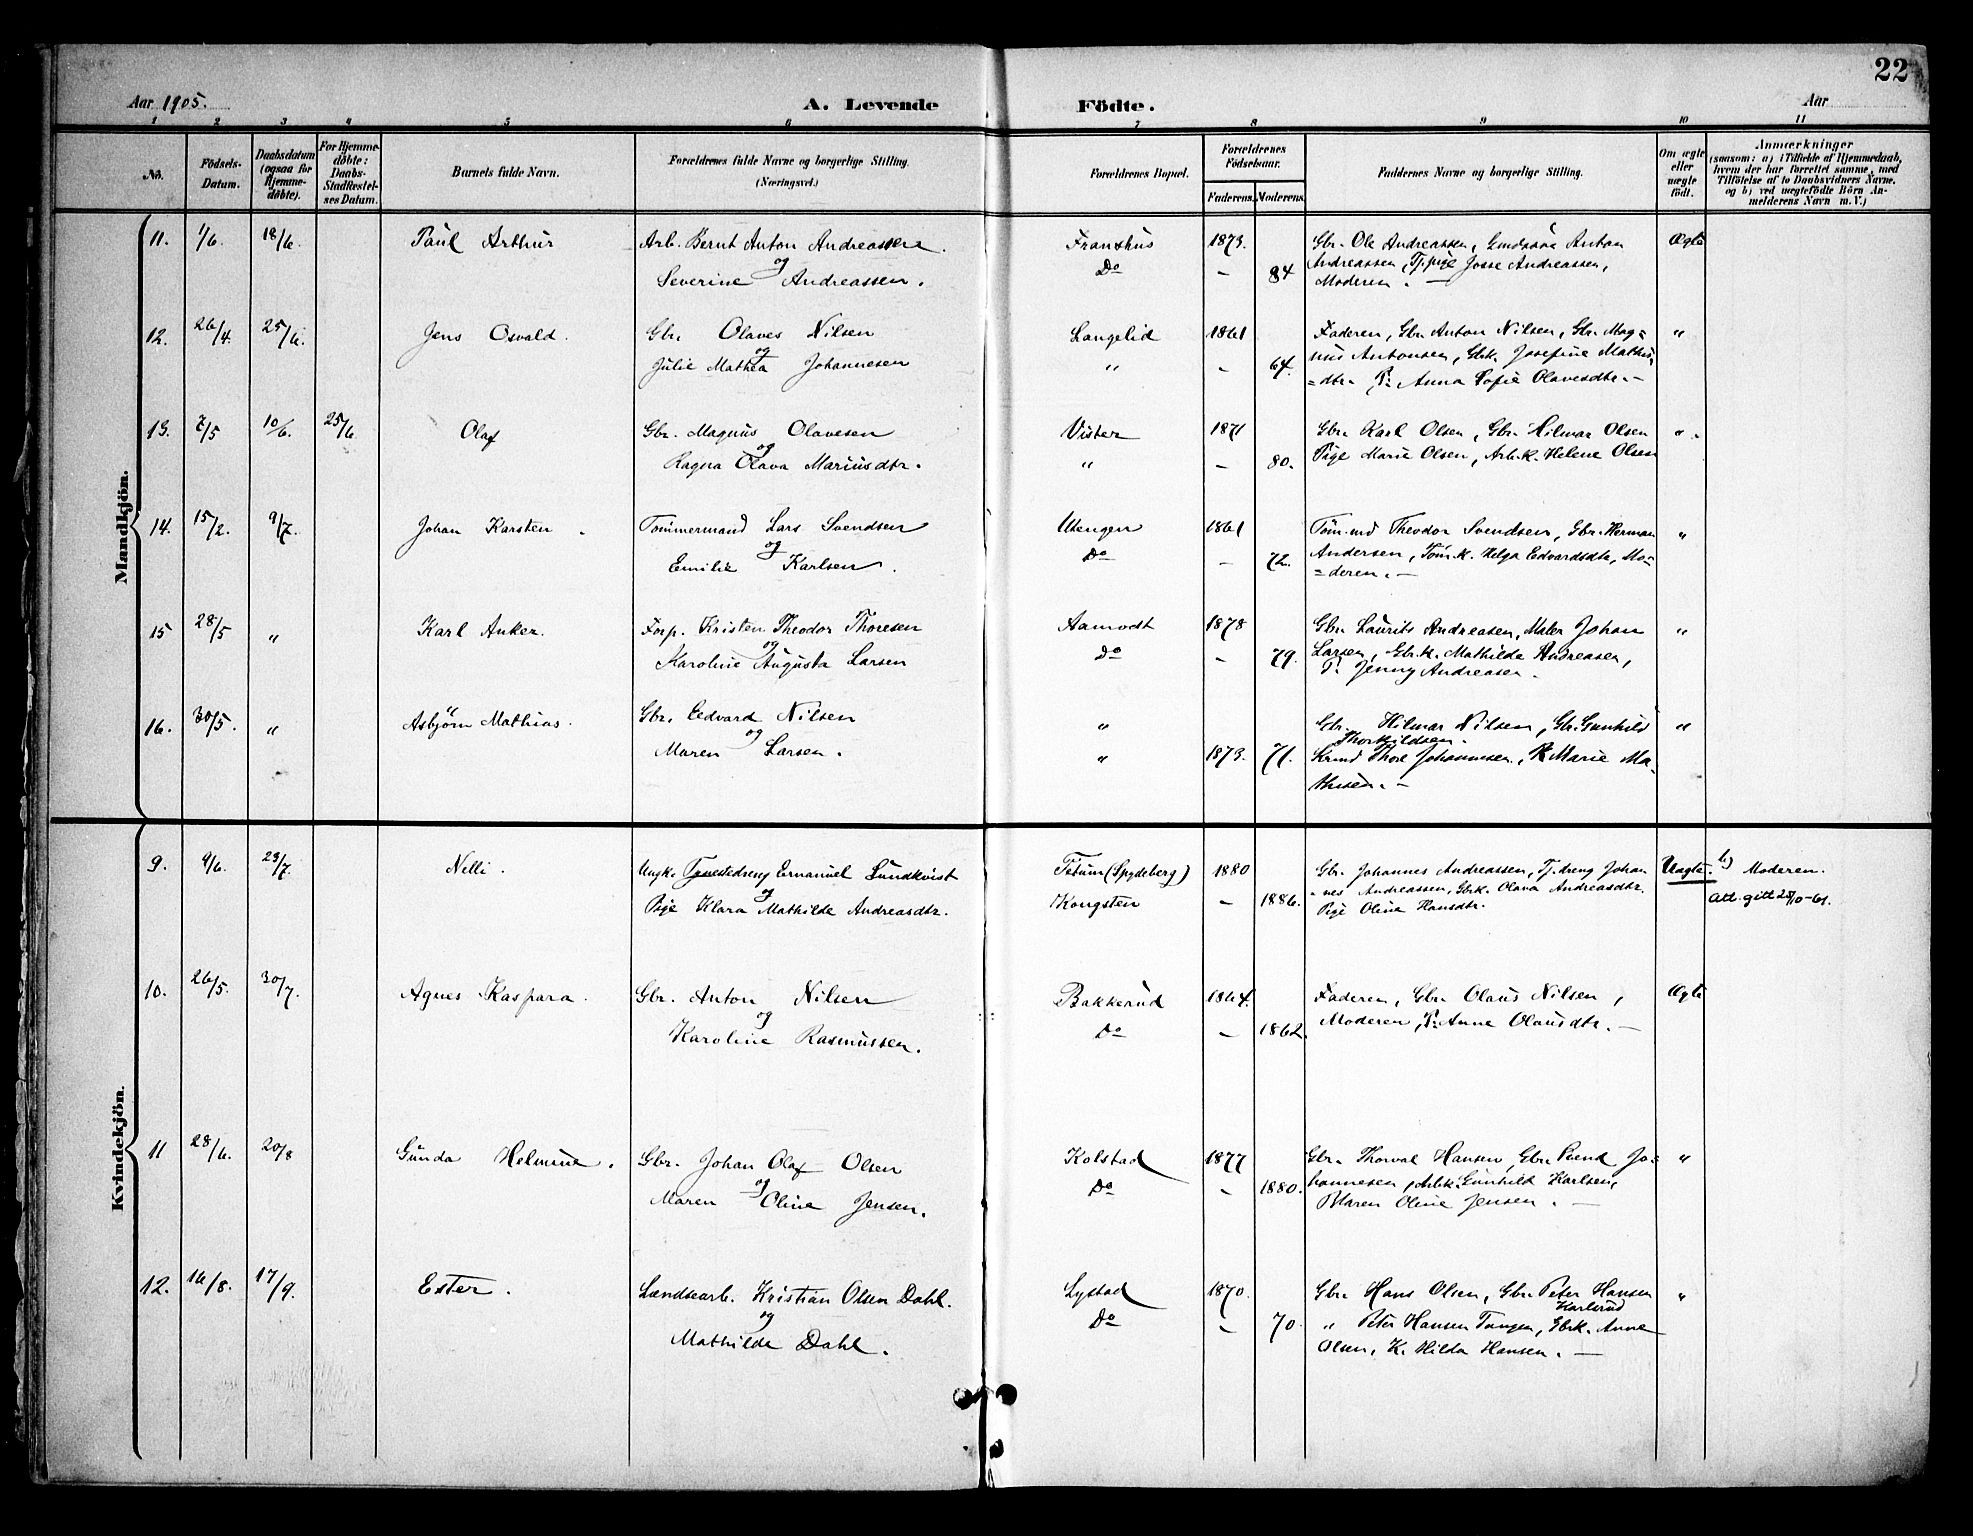 22
Aar 1905. A. Levende Födte. Aar
1 2 3 4 5 6 7 8 9 10 11
No. Födsels-Datum. Daabsdatum (ogsaa for Hjemmedøbte). For Hjemmedøbte: Daabs-Stadfestelses Datum. Barnets fulde Navn. Forældrenes fulde Navne og borgerlige Stilling. (Næringsvei.) Forældrenes Bopæl. Forældrenes Födselsaar. Faderens. Moderens. Faddernes Navne og borgerlige Stilling. Om ægte eller uægte födt. Anmærkninger (saasom: a) i Tilfælde af Hjemmedaab, hvem der har forrettet samme, med Tilföielse af to Daabsvidners Navne, og b) ved uægtefödte Börn Anmelderens Navn m. V.)
Mandkjön.
11. 1/6. 18/6. Paul Arthur Arb. Bernt Anton Andreassen Franshus 1873. Gbr. Ole Andreassen, Anton Ægte
og Do – 84 Andreassen, Tj.pige Josse Andreassen,
Severine Andreassen. Moderen. —
12. 26/4. 25/6. Jens Osvald. Gbr. Olaves Nilsen Langelid 1861 Faderen, Gbr Anton Nilsen, Gbr. Mag=
og
Julie Mathea Johannesen " – 64. nus Antonsen, Gbk. Josefine Mathis
=dtr. P. Anna Sofie Olavesdtr. —
13. 7/5 10/6. 25/6 Olaf Gbr. Magnus Olavesen Vister 1871 Gbr. Karl Olsen, Gbr Hilmar Olsen "
og
Ragna Olava Mariusdtr. " – 80. Pige Marie Olsen, Arb.k. Helene Olsen
14. 15/2. 9/7. Johan Karsten Tømmermand Lars Svendsen Utengen 1861 Töm.md Theodor Svendsen, Gbr. Herman "
og
Emilie Karlsen. Do – 72. Andersen, Töm.k. Helga Edvardsdtr, Mo-
=deren. —
15 28/5 " Karl Anker. Forp. Kristen Theodor Thoresen Aamodt 1878 Gbr. Laurits Andreasen, Maler Johan "
og
Karoline Augusta Larsen Do – 79. Larsen, Gbr.k. Mathilde Andreasen,
P. Jenny Andreasen.
16. 30/5. " Asbjörn Mathias. Gbr. Edvard Nilsen " Gbr. Hilmar Nilsen, Gbr. Gunhild "
og Thorkildsen.
Maren Larsen. " 1873. 71. Thore Johannesen, Marie Ma-
thisen. —
Kvindekjön.
9. 9/6. 23/7. Nelli. Ungk. Tjenestedreng Emanuel Lundkvist (Spydeberg) 1880 Gbr. Johannes Andreassen, Tj.dreng Johan Uægte. b) Moderen.
og
Pige Klara Mathilde Andreasdtr. Kongsten – 1886. nes Andreassen, Gbrk. Olava Andreasdtr. Att. gitt 25/10-61.
Pige Oline Hansdtr.
10. 26/5. 30/7. Agnes Kaspara. Gbr. Anton Nilsen Bakkerud 1864. Faderen, Gbr Olaus Nilsen, Ægte
og
Karoline Rasmussen. Do – 1862. Moderen, P. Anne Olausdtr. —
11 28/6. 20/8 Gunda Helmine. Gbr. Johan Olaf Olsen Kolstad 1877 Gbr. Thorval Hansen, Gbr. Svend Jo- "
og
Maren Oline Jensen. Do – 1880. hannesen, Arbk. Gunhild Karlsen,
Maren Oline Jensen. —
12. 16/8. 17/9. Ester. Landsearb. Kristian Olsen Dahl. Lystad 1870. Gbr. Hans Olsen, Gbr. Peter Hansen "
og Karlsrud
Mathilde Dahl. Do – 70. " Peter Hansen Tangen, Gbrk. Anne
Olsen, K. Hilda Hansen. —